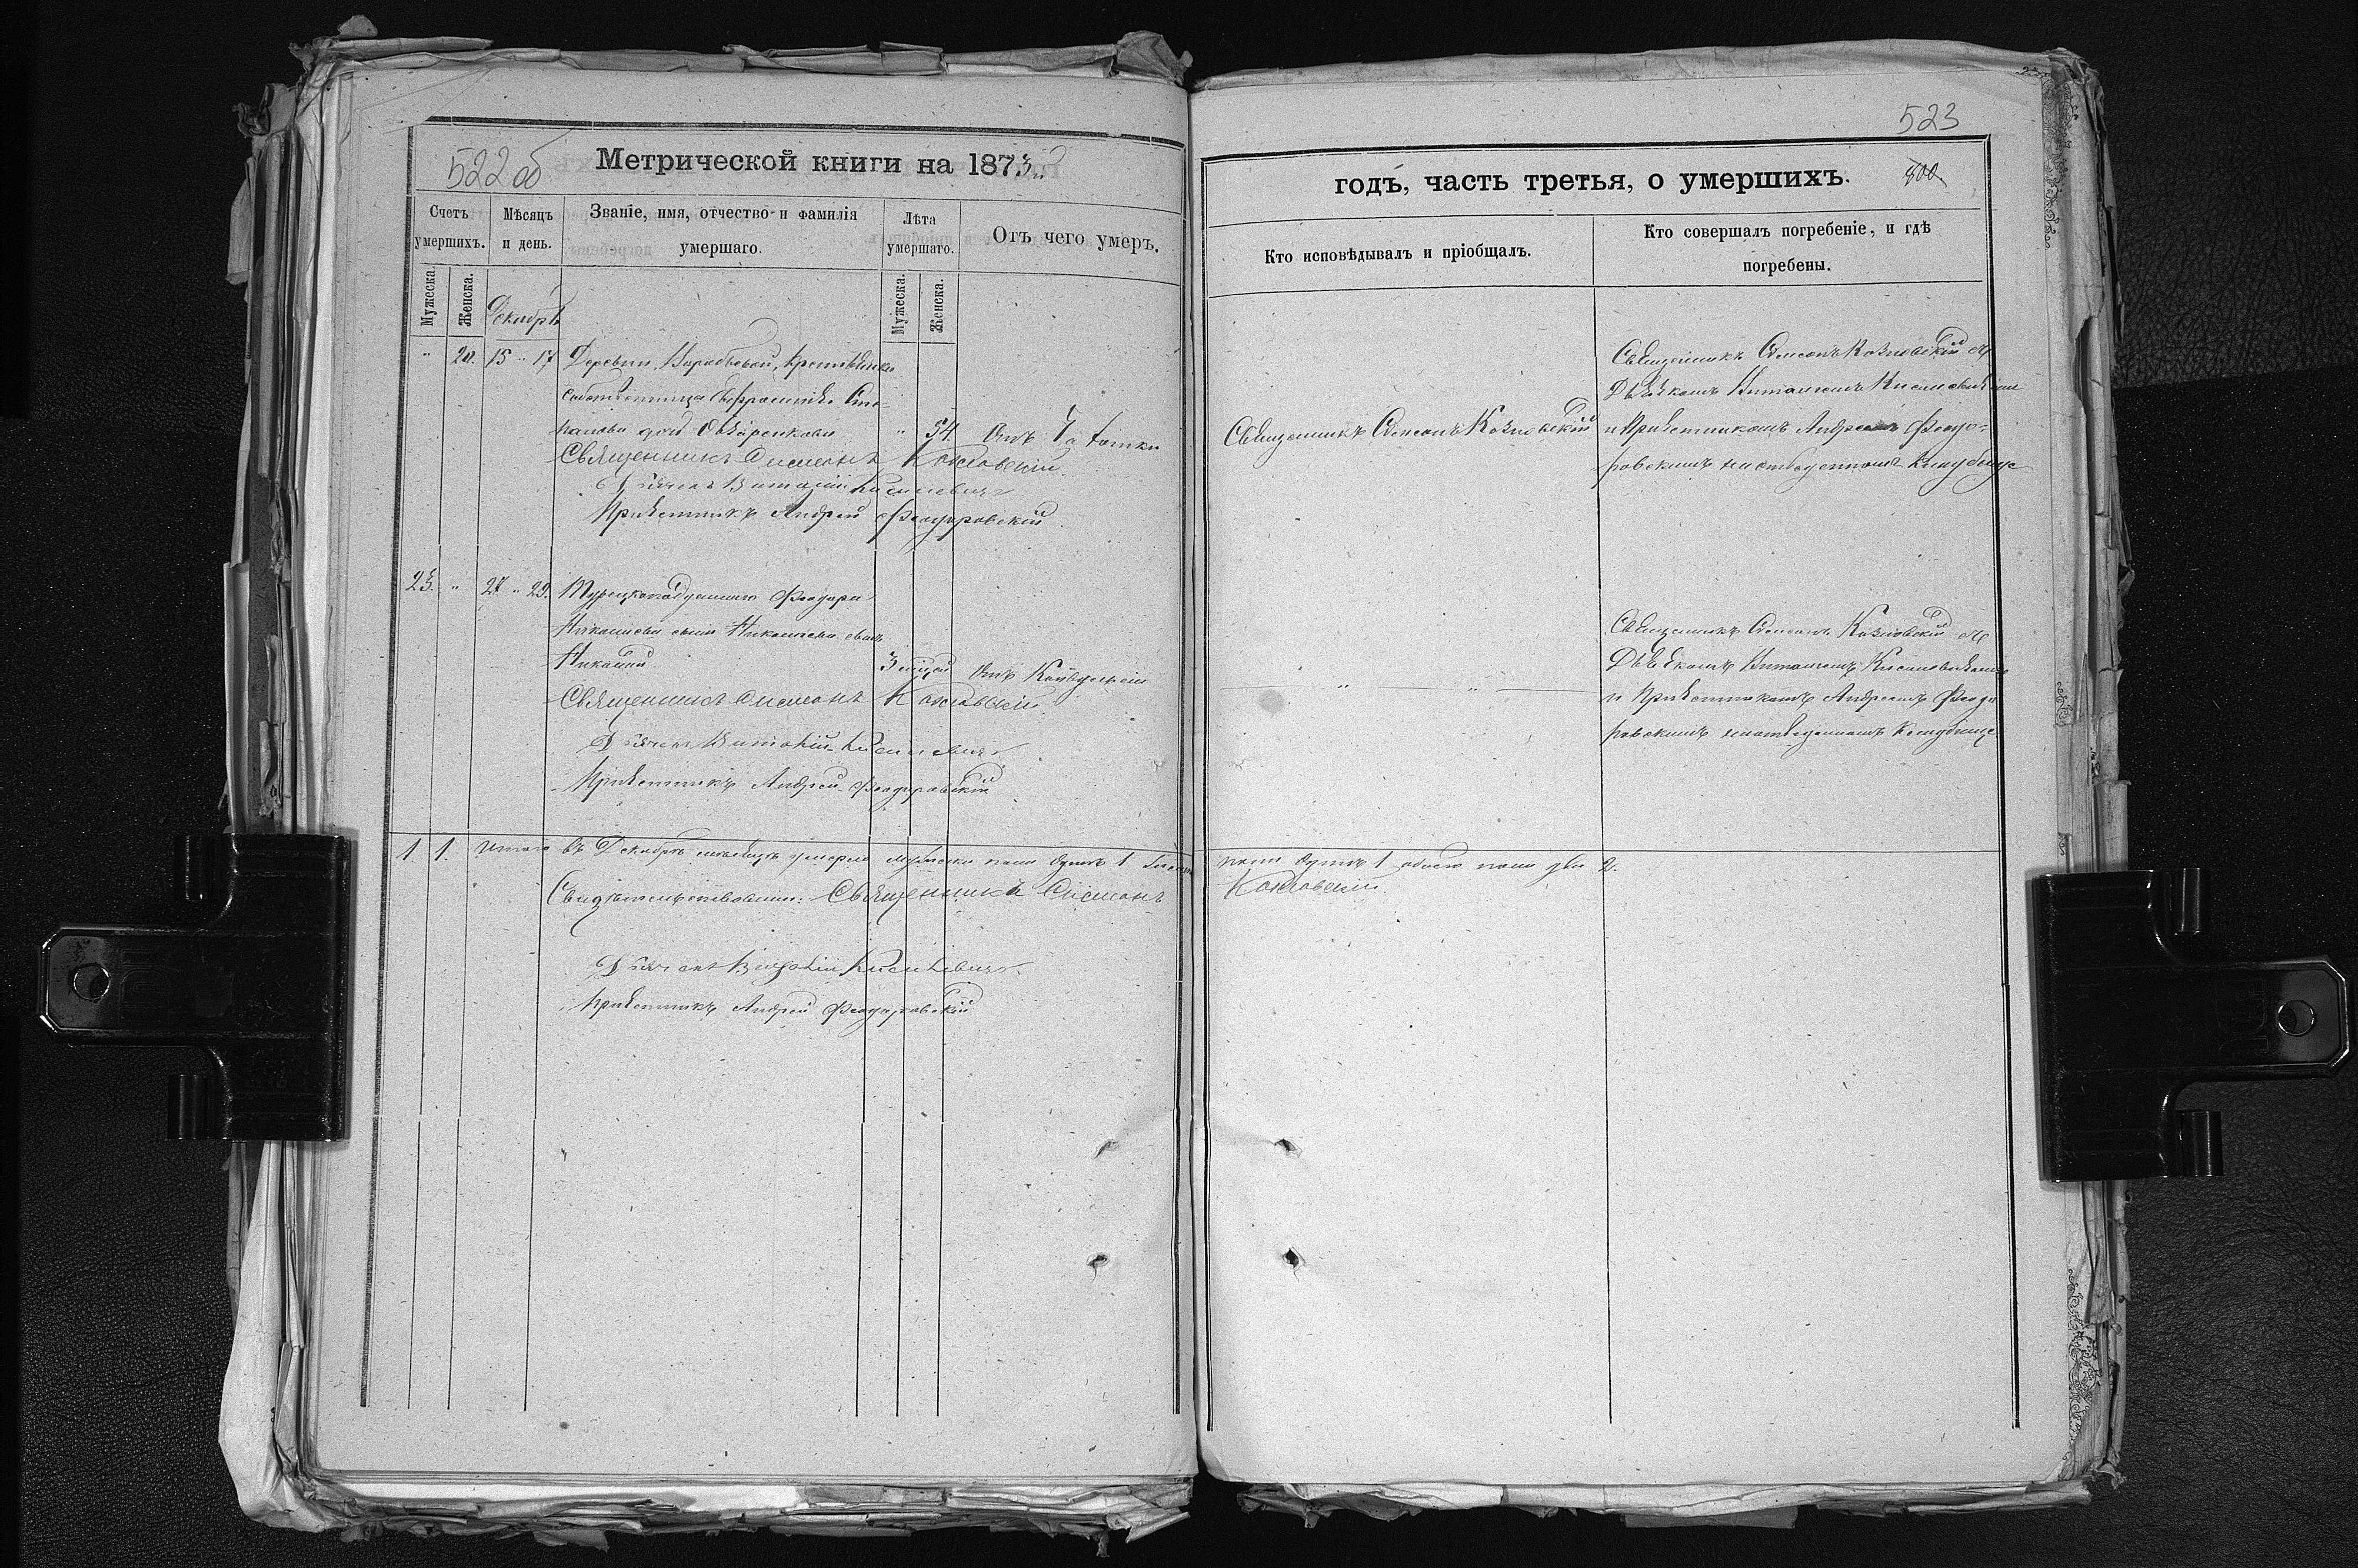 523
522 об
Метрической книги на 1873
годъ, часть третья, о умершихъ.
400
Счетъ умершихъ.
Мѣсяцъ и день.
Званіе, имя, отчество и фамилія умершаго.
Лѣта умершаго.
Отъ чего умеръ.
Кто исповѣдывалъ и пріобщалъ.
Кто совершалъ погребеніе, и гдѣ погребены.
Мужеска.
Женска.
Мужеска.
Женска.
Декабрь
" 20. 15 " 17
Деревни
собственница Евфросинія Сте=
панова
" 54.
Отъ
Священникъ Симеонъ Козловскій
Дьячекъ Виталій Кисилевичъ
Причетникъ Андрей Феодоровскій
Священникъ Симеонъ Козловскій
Священникъ Симеонъ Козловскій съ
Дьячкомъ Виталіемъ Кисилевичемъ
и Причетникомъ Андреемъ Феодо=
ровскимъ на отведенномъ кладбище
23. " 27. " 29.
Турецкоподданнаго Феодора
Николаева сынъ
Николай
3 мѣсяц
Отъ
Священникъ Симеонъ Козловскій
Дьячекъ Виталій Кисилевичъ
Причетникъ Андрей Феодоровскій
" "
Священникъ Симеонъ Козловскій съ
Дьячкомъ Виталіемъ Кисилевичемъ
и Причетникомъ Андреемъ Феодо
ровскимъ на отведенномъ кладбище
1 1. Итого въ Декабрѣ мѣсяцѣ умерло мужеска пола душъ 1 женска
пола душъ 1 обоего пола два 2.
Свидѣтельствовали: Священникъ Симеонъ
Козловскій
Дьячекъ Виталій Кисилевичъ
Причетникъ Андрей Феодоровскій